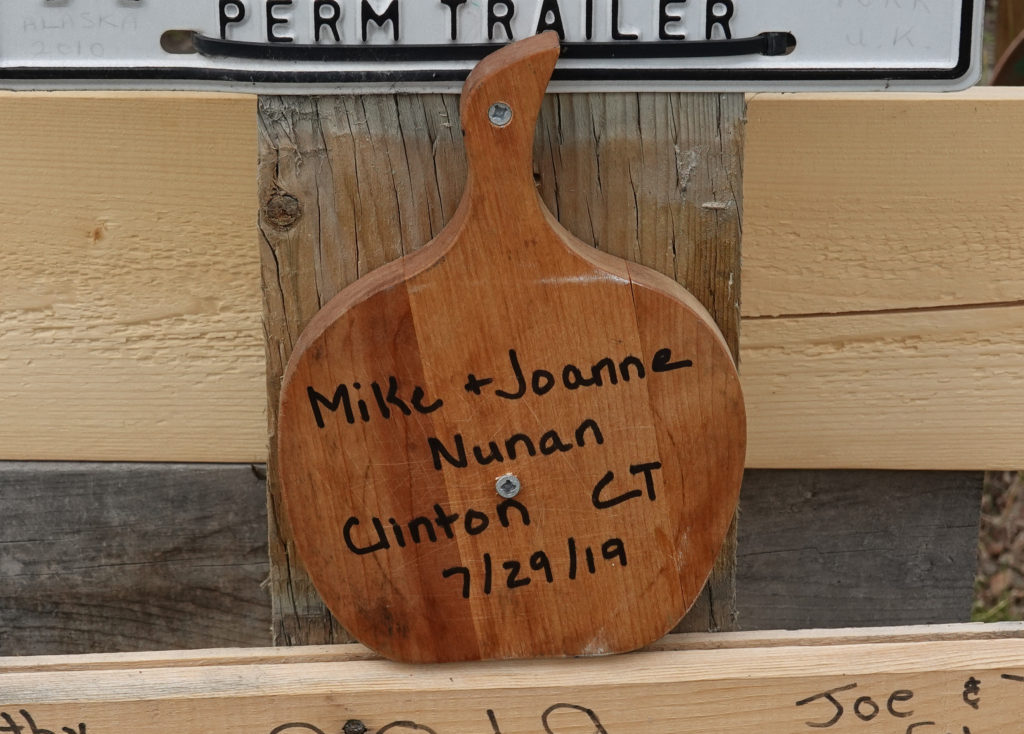 PERM TRAILER
ALASKA
2010
YORK
U.K.
Mike + Joanne
Nunan
Clinton CT
7/29/19
Joe &
2019